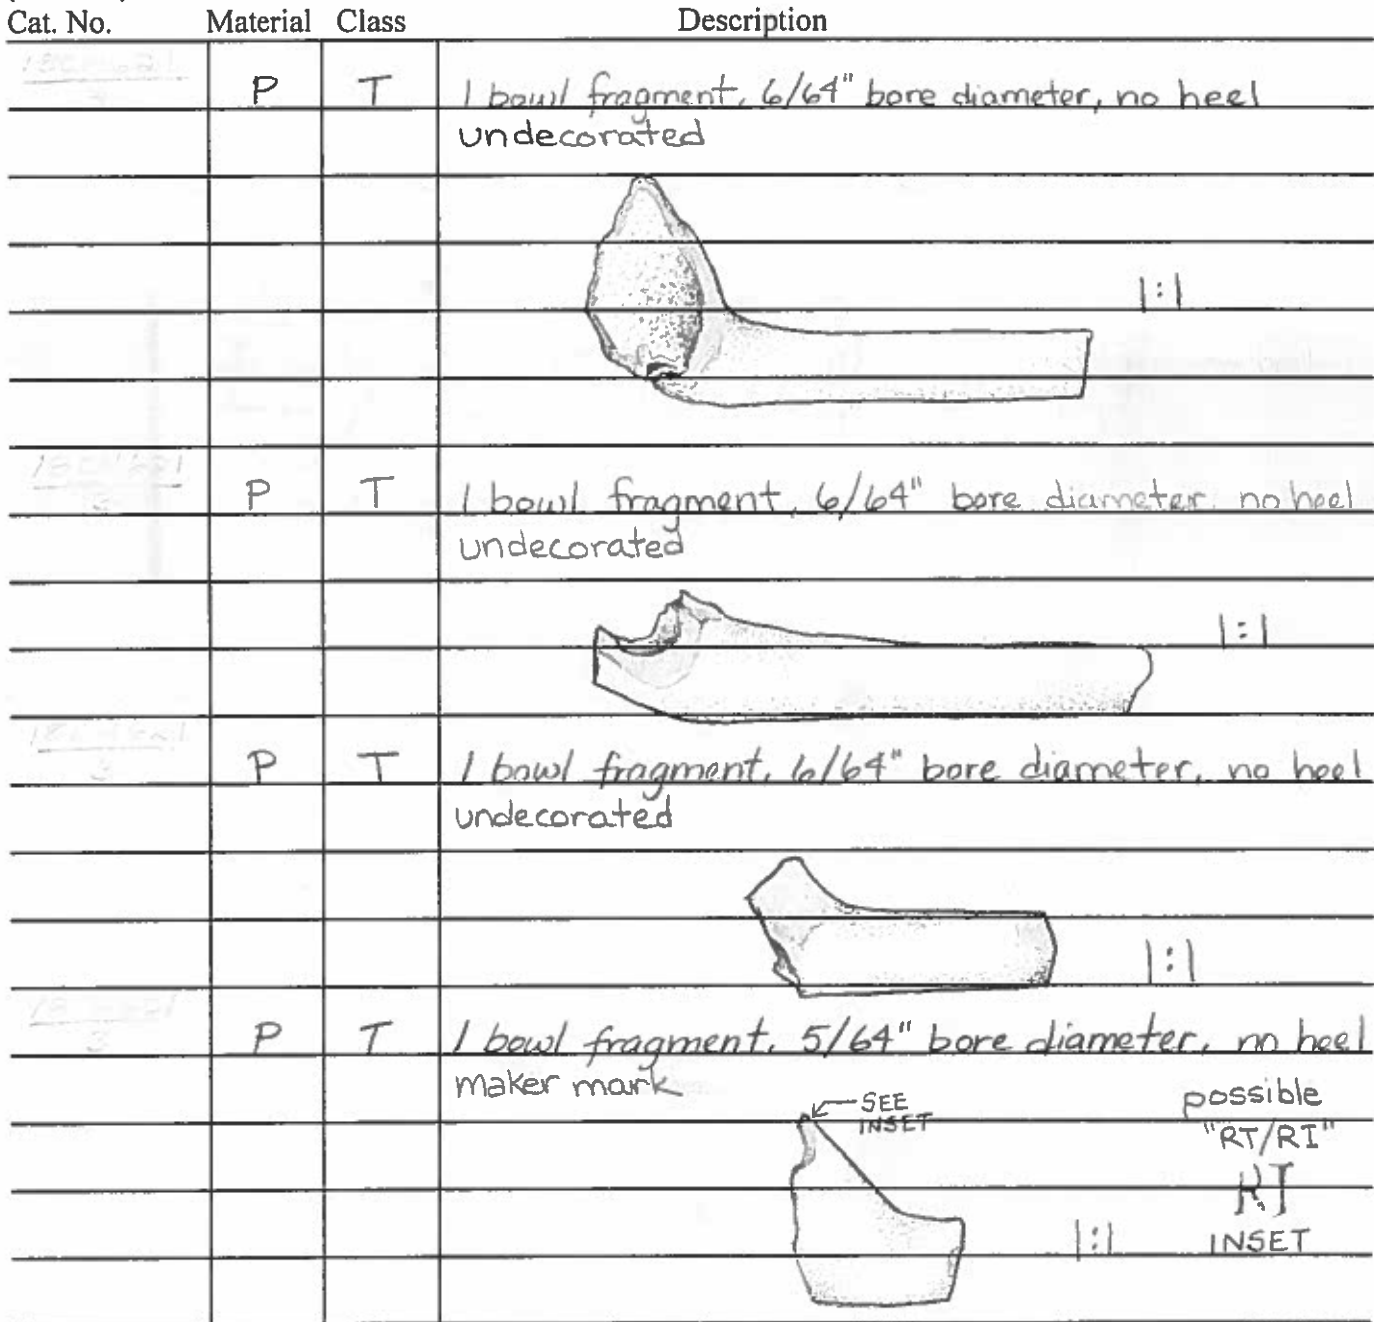 Cat. No. Material Class Description
P T 1 bowl fragment, 6/64" bore diameter, no heel
undecorated
1:1
P T 1 bowl fragment, 6/64" bore diameter, no heel
undecorated
1:1
P T 1 bowl fragment, 6/64" bore diameter, no heel
undecorated
1:1
P T 1 bowl fragment, 5/64" bore diameter, no heel
maker mark
SEE
INSET
possible
"RT/RI"
RI
INSET
1:1